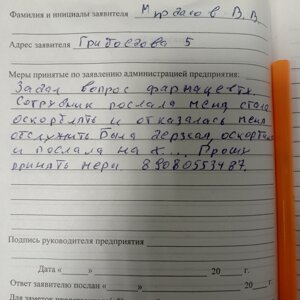 Фамилия и инициалы заявителя Мурдасов В.В.
Адрес заявителя Грибоедова 5
Меры принятые по заявлению администрацией предприятия:
Задал вопрос фармацевту.
Сотрудник послала меня стала
оскорблять и отказалась меня
обслужить. Была дерзкая, оскорбляла
и послала на х... Прошу
принять меры 89080553487.
Подпись руководителя предприятия
Дата «     »                20     г.
Ответ заявителю послан «     »                20     г.